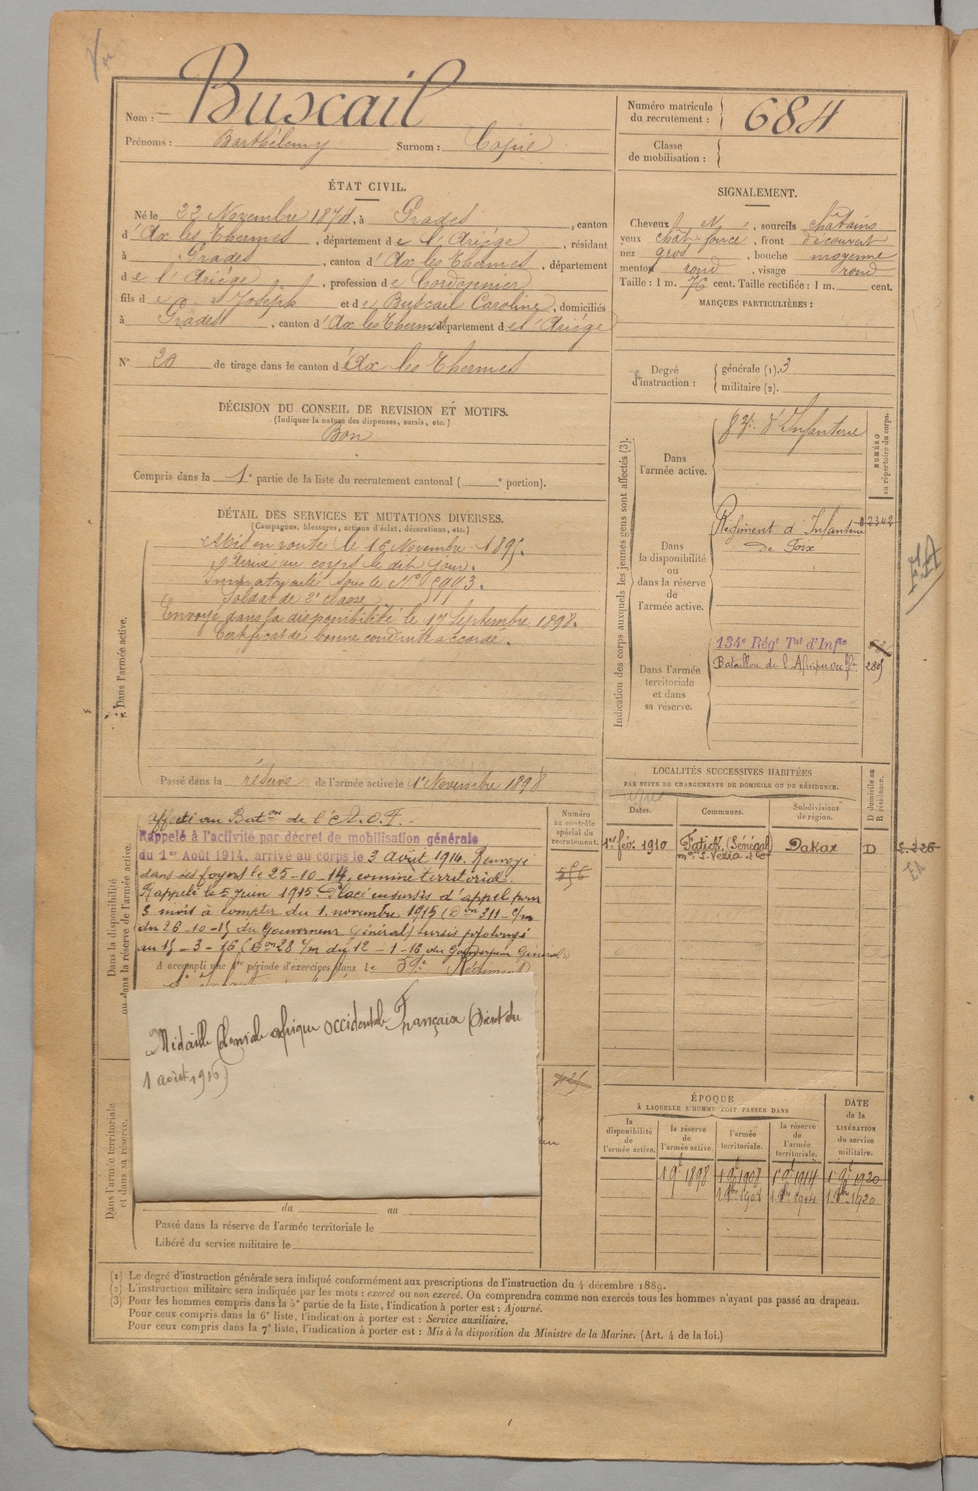 Nom : Buscail
Prénoms : Barthélemy Surnom : Copie
ÉTAT CIVIL.
Né le 22 Novembre 1874, à Prades, canton
d'Ax les Thermes, département de l'Ariége, résidant
à Prades, canton d'Ax les Thermes, département
de l'Ariége, profession de Cordonnier
fils de Joseph et de Buscail Caroline, domiciliés
à Prades, canton d'Ax les Thermes, département de l'Ariége
N° 20 de tirage dans le canton d'Ax les Thermes
DÉCISION DU CONSEIL DE REVISION ET MOTIFS.
(Indiquer la nature des dispenses, sursis, etc.)
Bon
Compris dans la 1e partie de la liste du recrutement cantonal ( e portion).
DÉTAIL DES SERVICES ET MUTATIONS DIVERSES.
(Campagnes, blessures, actions d'éclat, décorations, etc.)
Dans l'armée active.
Mis en route le 16 Novembre 1895.
Arrivé au corps le dit jour.
Immatriculé sous le N° 5993.
Soldat de 2e classe
Envoyé dans la disponibilité le 17 Septembre 1898.
Certificat de bonne conduite accordé.
Passé dans la réserve de l'armée active le 1er Novembre 1898
Dans la disponibilité
ou dans la réserve de l'armée active.
Affecté au Bat.on de l'A.O.F.
Rappelé à l'activité par décret de mobilisation générale
du 1er Août 1914, arrivé au corps le 3 Août 1914. Renvoyé
dans ses foyers le 25-10-14, comme territorial.
Rappelé le 5 Juin 1915. Placé en sursis d'appel pour
3 mois à compter du 1 novembre 1915 (Don 311-c/m
du 26-10-15 du Gouverneur Général) sursis prolongé
au 15-3-16 (Don 28 c/m du 12-1-16 du Gouverneur Général)
A accompli une 1re période d'exercices dans le 59e Régiment
Médaille Coloniale Afrique Occidentale Française (Dient du
1 août 1916)
Dans l'armée territoriale
et dans sa réserve.
du au
Passé dans la réserve de l'armée territoriale le
Libéré du service militaire le
Numéro
au contrôle
spécial du
recrutement.
556
Numéro matricule
du recrutement : 684
Classe
de mobilisation :
SIGNALEMENT.
Cheveux , sourcils châtains
yeux chât. foncé, front découvert
nez gros, bouche moyenne
menton rond, visage rond
Taille : 1 m. 76 cent. Taille rectifiée : 1 m. cent.
MARQUES PARTICULIÈRES :
Degré
d'instruction :
générale (1). 3
militaire (2).
Indication des corps auxquels les jeunes gens sont affectés (3).
NUMÉRO
au répertoire du corps.
Dans
l'armée active.
d'Infanterie
Dans
la disponibilité
ou
dans la réserve
de
l'armée active.
Régiment d'Infanterie
de Foix
2342
Dans l'armée
territoriale
et dans
sa réserve.
134e Régt Tal d'Infie
Bataillon de l'Afrique Occ. Fse
2805
LOCALITÉS SUCCESSIVES HABITÉES
PAR SUITE DE CHANGEMENTS DE DOMICILE OU DE RÉSIDENCE.
Dates. Communes. Subdivisions
de région. D domicile ou
R résidence.
1er fév. 1910 Fatick (Sénégal) Dakar D
ÉPOQUE
À LAQUELLE L'HOMME DOIT PASSER DANS
la
disponibilité
de
l'armée active.
la réserve
de
l'armée active.
l'armée
territoriale.
la réserve
de
l'armée
territoriale.
DATE
de la
LIBÉRATION
du service
militaire.
1 9bre 1898 1 9bre 1908 1 9bre 1914 1 9bre 1920
(1) Le degré d'instruction générale sera indiqué conformément aux prescriptions de l'instruction du 4 décembre 1889.
(2) L'instruction militaire sera indiquée par les mots : exercé ou non exercé. On comprendra comme non exercés tous les hommes n'ayant pas passé au drapeau.
(3) Pour les hommes compris dans la 5e partie de la liste, l'indication à porter est : Ajourné.
Pour ceux compris dans la 6e liste, l'indication à porter est : Service auxiliaire.
Pour ceux compris dans la 7e liste, l'indication à porter est : Mis à la disposition du Ministre de la Marine. (Art. 4 de la loi.)